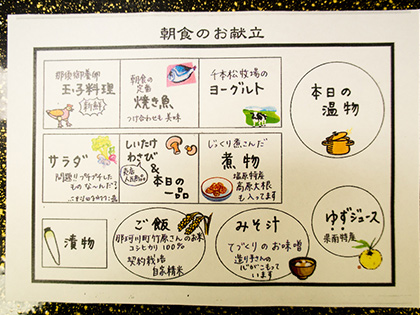 朝食のお献立
那須御養卵
玉子料理
新鮮
朝食の
定番
焼き魚
つけ合わせも美味
千本松牧場の
ヨーグルト
本日の
温物
サラダ
問題!!プチプチした
もの な〜んだ?
しいたけ
わさび
&
本日の
一品
じっくり煮こんだ
煮物
塩原特産
高原大根
も入ってます
漬物
ご飯
那珂川町竹原さんのお米
コシヒカリ100%
契約栽培
自家精米
みそ汁
てづくりのお味噌
造り手さんの
心がこもって
います
ゆずジュース
県南特産